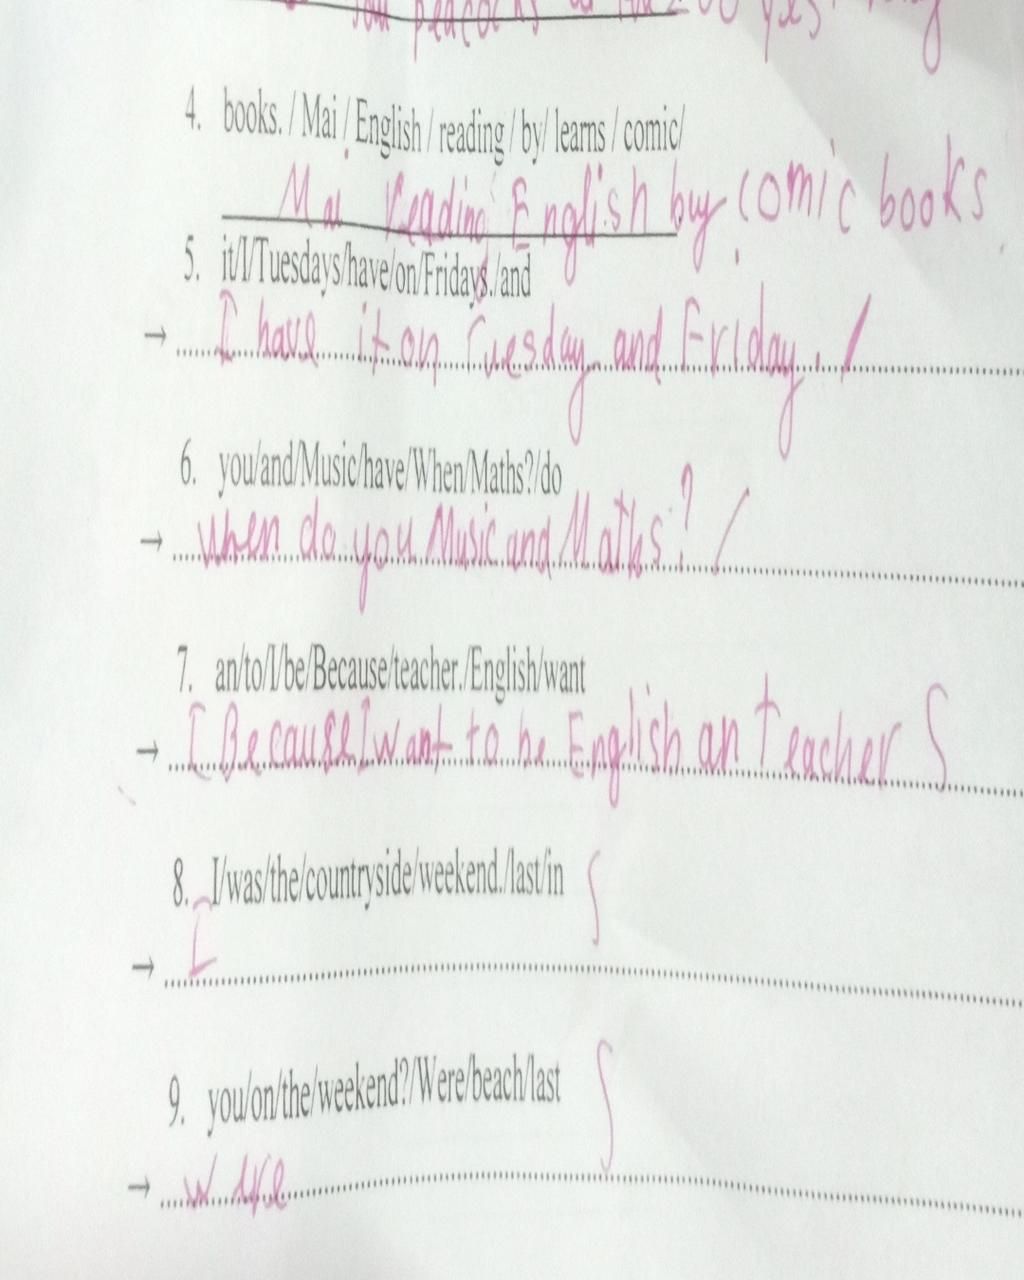 peacocks
4. books. / Mai / English / reading / by/ learns / comic/
Mai Reading English by comic books
5. it/I/Tuesdays/have/on/Fridays./and
→ I have it on Tuesday and Friday. /
6. you/and/Music/have/When/Maths?/do
→ When do you Music and Maths? /
7. an/to/I/be/Because/teacher./English/want
→ I Because I want to be English an teacher S
8. I/was/the/countryside/weekend./last/in S
→ I
9. you/on/the/weekend?/Were/beach/last S
→ Were